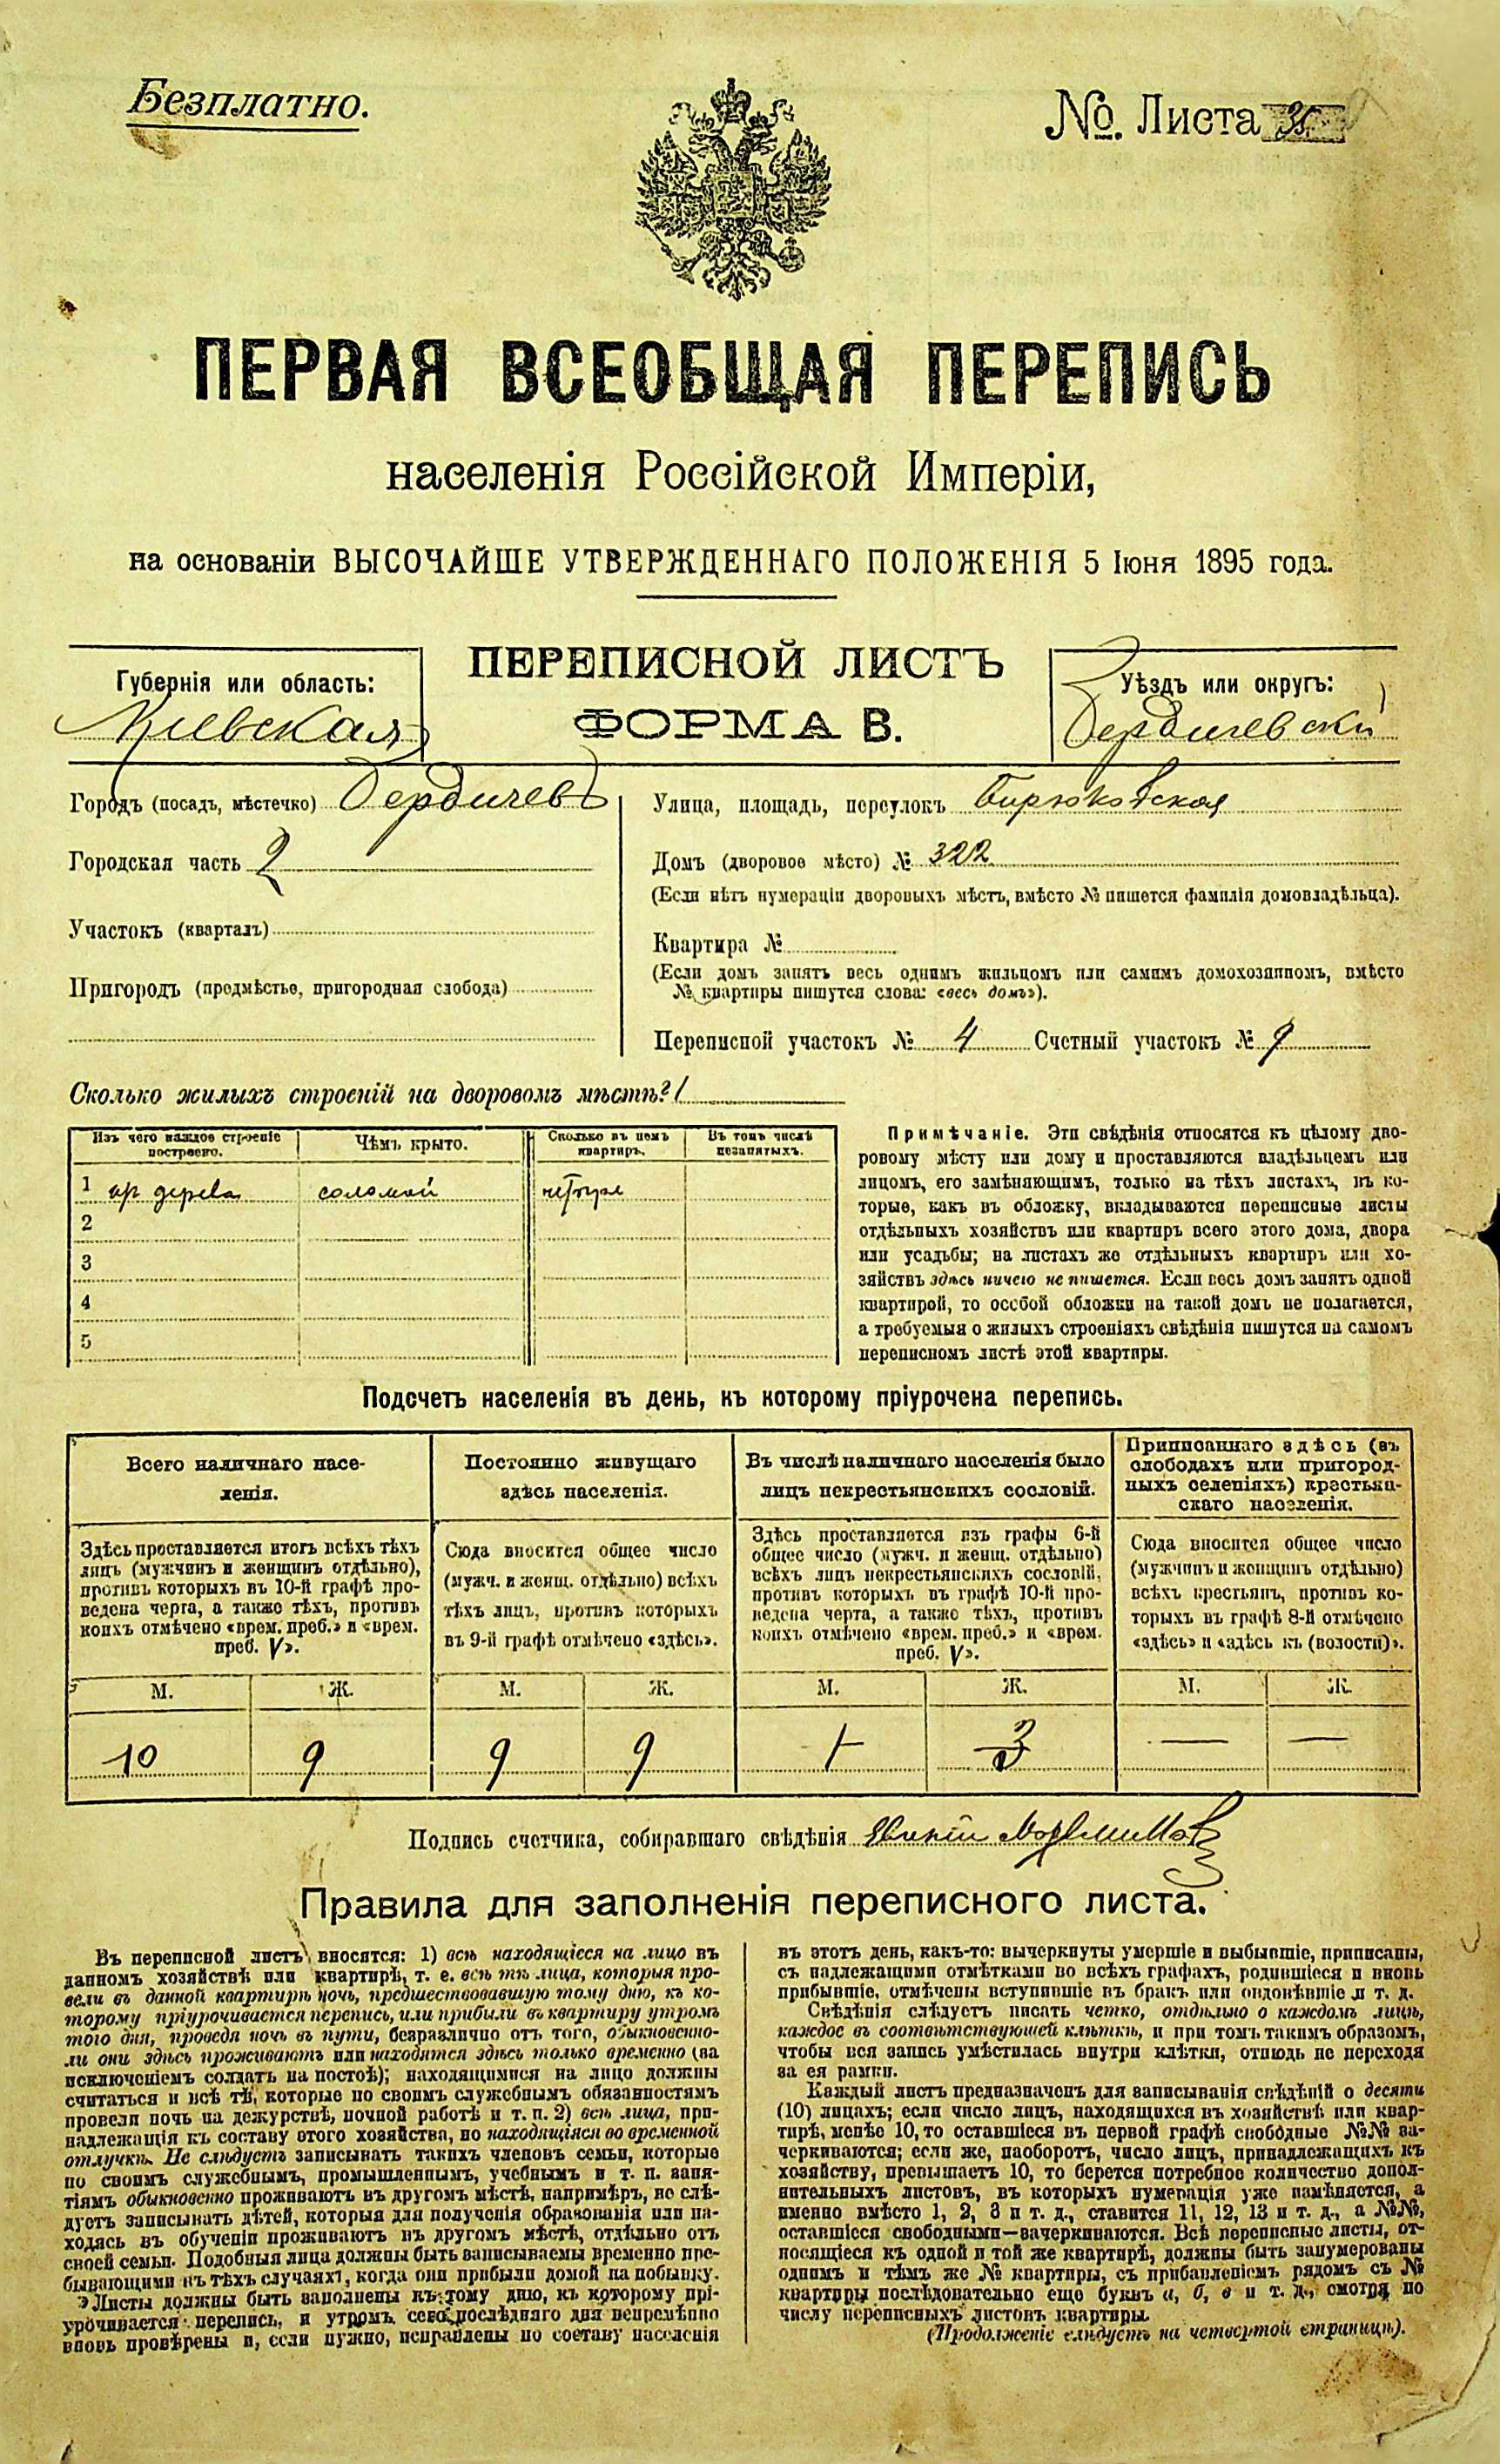 Безплатно.
№. Листа
ПЕРВАЯ ВСЕОБЩАЯ ПЕРЕПИСЬ
населенія Россійской Имперіи,
на основаніи ВЫСОЧАЙШЕ УТВЕРЖДЕННАГО ПОЛОЖЕНІЯ 5 Іюня 1895 года.
ПЕРЕПИСНОЙ ЛИСТЪ
ФОРМА В.
Губернія или область:
Кіевская
Уѣздъ или округъ:
Бердичевскій
Городъ (посадъ, мѣстечко) Бердичевъ
Городская часть 2
Участокъ (кварталъ)
Пригородъ (предмѣстье, пригородная слобода)
Улица, площадь, переулокъ Бирюковская
Домъ (дворовое мѣсто) № 322
(Если нѣтъ нумераціи дворовыхъ мѣстъ, вмѣсто № пишется фамилія домовладѣльца).
Квартира №
(Если домъ занятъ весь однимъ жильцомъ или самимъ домохозяиномъ, вмѣсто
№ квартиры пишутся слова: «весь домъ»).
Переписной участокъ № 4 Счетный участокъ № 9
Сколько жилыхъ строеній на дворовомъ мѣстѣ? 1
Изъ чего каждое строеніе построено. Чѣмъ крыто. Сколько въ немъ квартиръ. Въ томъ числѣ незанятыхъ.
1 дерева соломой четыре
2
3
4
5
Примѣчаніе. Эти свѣдѣнія относятся къ цѣлому дво-
ровому мѣсту или дому и проставляются владѣльцемъ или
лицомъ, его замѣняющимъ, только на тѣхъ листахъ, въ ко-
торые, какъ въ обложку, вкладываются переписные листы
отдѣльныхъ хозяйствъ или квартиръ всего этого дома, двора
или усадьбы; на листахъ же отдѣльныхъ квартиръ или хо-
зяйствъ здѣсь ничего не пишется. Если весь домъ занятъ одной
квартирой, то особой обложки на такой домъ не полагается,
а требуемыя о жилыхъ строеніяхъ свѣдѣнія пишутся на самомъ
переписномъ листѣ этой квартиры.
Подсчетъ населенія въ день, къ которому пріурочена перепись.
Всего наличнаго насе-
ленія.
Здѣсь проставляется итогъ всѣхъ тѣхъ
лицъ (мужчинъ и женщинъ отдѣльно),
противъ которыхъ въ 10-й графѣ про-
ведена черта, а также тѣхъ, противъ
коихъ отмѣчено «врем. преб.» и «врем.
преб. V».
М. Ж.
10 9
Постоянно живущаго
здѣсь населенія.
Сюда вносится общее число
(мужч. и женщ. отдѣльно) всѣхъ
тѣхъ лицъ, противъ которыхъ
въ 9-й графѣ отмѣчено «здѣсь».
М. Ж.
9 9
Въ числѣ наличнаго населенія было
лицъ некрестьянскихъ сословій.
Здѣсь проставляется изъ графы 6-й
общее число (мужч. и женщ. отдѣльно)
всѣхъ лицъ некрестьянскихъ сословій,
противъ которыхъ въ графѣ 10-й про-
ведена черта, а также тѣхъ, противъ
коихъ отмѣчено «врем. преб.» и «врем.
преб. V».
М. Ж.
Приписаннаго здѣсь (въ
слободахъ или пригород-
ныхъ селеніяхъ) крестьян-
скаго населенія.
Сюда вносится общее число
(мужчинъ и женщинъ отдѣльно)
всѣхъ крестьянъ, противъ ко-
торыхъ въ графѣ 8-й отмѣчено
«здѣсь» и «здѣсь къ (волости)».
М. Ж.
— —
Подпись счетчика, собиравшаго свѣдѣнія
Правила для заполненія переписного листа.
Въ переписной листъ вносятся: 1) всѣ находящіеся на лицо въ
данномъ хозяйствѣ или квартирѣ, т. е. всѣ тѣ лица, которыя про-
вели въ данной квартирѣ ночь, предшествовавшую тому дню, къ ко-
торому пріурочивается перепись, или прибыли въ квартиру утромъ
того дня, проведя ночь въ пути, безразлично отъ того, обыкновенно-
ли они здѣсь проживаютъ или находятся здѣсь только временно (за
исключеніемъ солдатъ на постоѣ); находящимися на лицо должны
считаться и всѣ тѣ, которые по своимъ служебнымъ обязанностямъ
провели ночь на дежурствѣ, ночной работѣ и т. п. 2) всѣ лица, при-
надлежащія къ составу этого хозяйства, но находящіяся во временной
отлучкѣ. Не слѣдуетъ записывать такихъ членовъ семьи, которые
по своимъ служебнымъ, промышленнымъ, учебнымъ и т. п. заня-
тіямъ обыкновенно проживаютъ въ другомъ мѣстѣ, напримѣръ, не слѣ-
дуетъ записывать дѣтей, которыя для полученія образованія или на-
ходясь въ обученіи проживаютъ въ другомъ мѣстѣ, отдѣльно отъ
своей семьи. Подобныя лица должны быть записываемы временно пре-
бывающими въ тѣхъ случаяхъ, когда они прибыли домой на побывку.
Листы должны быть заполнены къ тому дню, къ которому прі-
урочивается перепись, и утромъ сего послѣдняго дня непремѣнно
вновь провѣрены и, если нужно, исправлены по составу населенія
въ этотъ день, какъ-то: вычеркнуты умершіе и выбывшіе, приписаны,
съ надлежащими отмѣтками во всѣхъ графахъ, родившіеся и вновь
прибывшіе, отмѣчены вступившіе въ бракъ или овдовѣвшіе и т. д.
Свѣдѣнія слѣдуетъ писать четко, отдѣльно о каждомъ лицѣ,
каждое въ соотвѣтствующей клѣткѣ, и при томъ такимъ образомъ,
чтобы вся запись умѣстилась внутри клѣтки, отнюдь не переходя
за ея рамки.
Каждый листъ предназначенъ для записыванія свѣдѣній о десяти
(10) лицахъ; если число лицъ, находящихся въ хозяйствѣ или квар-
тирѣ, менѣе 10, то оставшіеся въ первой графѣ свободные №№ за-
черкиваются; если же, наоборотъ, число лицъ, принадлежащихъ къ
хозяйству, превышаетъ 10, то берется потребное количество допол-
нительныхъ листовъ, въ которыхъ нумерація уже измѣняется, а
именно вмѣсто 1, 2, 3 и т. д., ставится 11, 12, 13 и т. д., а №№,
оставшіеся свободными—зачеркиваются. Всѣ переписные листы, от-
носящіеся къ одной и той же квартирѣ, должны быть занумерованы
однимъ и тѣмъ же № квартиры, съ прибавленіемъ рядомъ съ №
квартиры послѣдовательно еще буквъ а, б, в и т. д., смотря по
числу переписныхъ листовъ квартиры.
(Продолженіе слѣдуетъ на четвертой страницѣ).